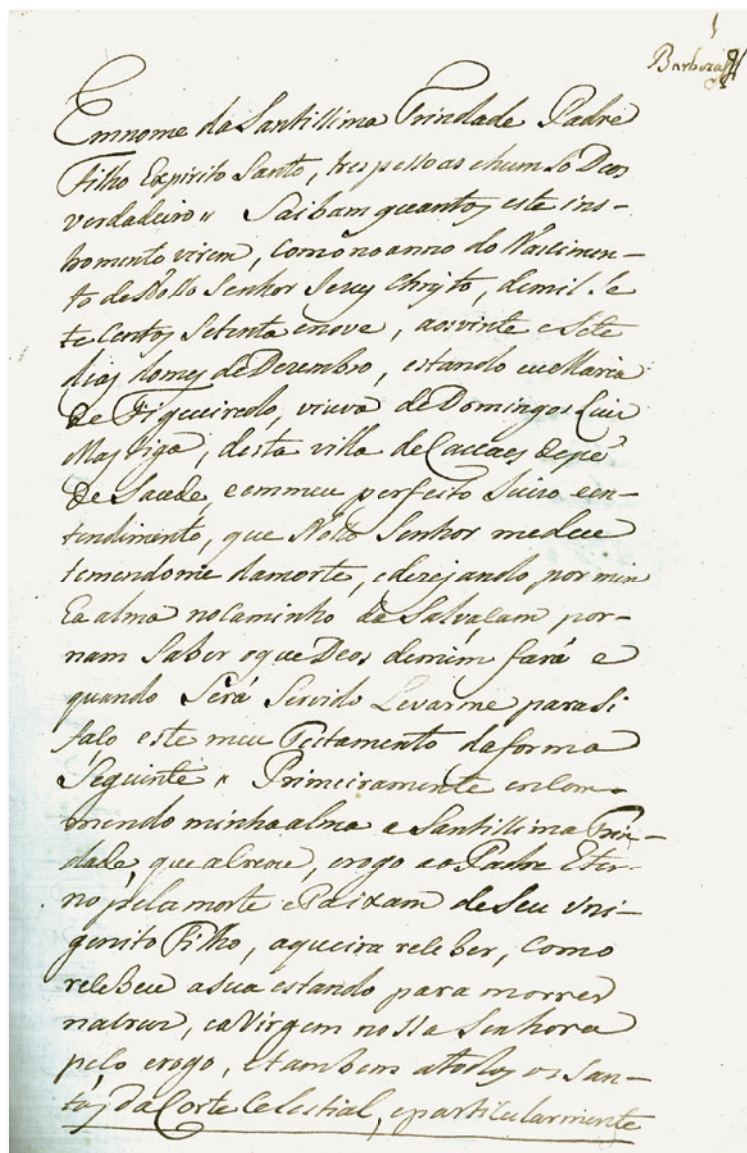 1
Barboza
Em nome da Santissima Trindade Padre
Filho Espirito Santo, tres pessoas e hum só Deos
verdadeiro" Saibam quantos este ins-
tromento virem, como no anno do Nascimen-
to de Nosso Senhor Jesus Christo, de mil se
te centos setenta e nove, aos vinte e sete
dias do mes de Dezembro, estando eu Maria
de Figueiredo, viuva de Domingos Luis
desta villa de de pé
de saude, e em meu perfeito juizo e en-
tendimento, que Nosso Senhor me deu
temendome da morte, e dezejando por min
ha alma no caminho da Salvaçam por-
nam saber o que Deos de mim fará e
quando será servido levarme para si
faço este meu Testamento da forma
seguinte" Primeiramente encom-
mendo minha alma a Santissima Trin-
dade, que a creou, e rogo ao Padre Eter-
no pela morte e Paixam de seu Uni-
genito Filho, a queira receber, como
recebeu a sua estando para morrer
na cruz, e a Virgem nossa Senhora
peço e rogo, e tambem a todos os San-
tos da Corte Celestial, e particularmente